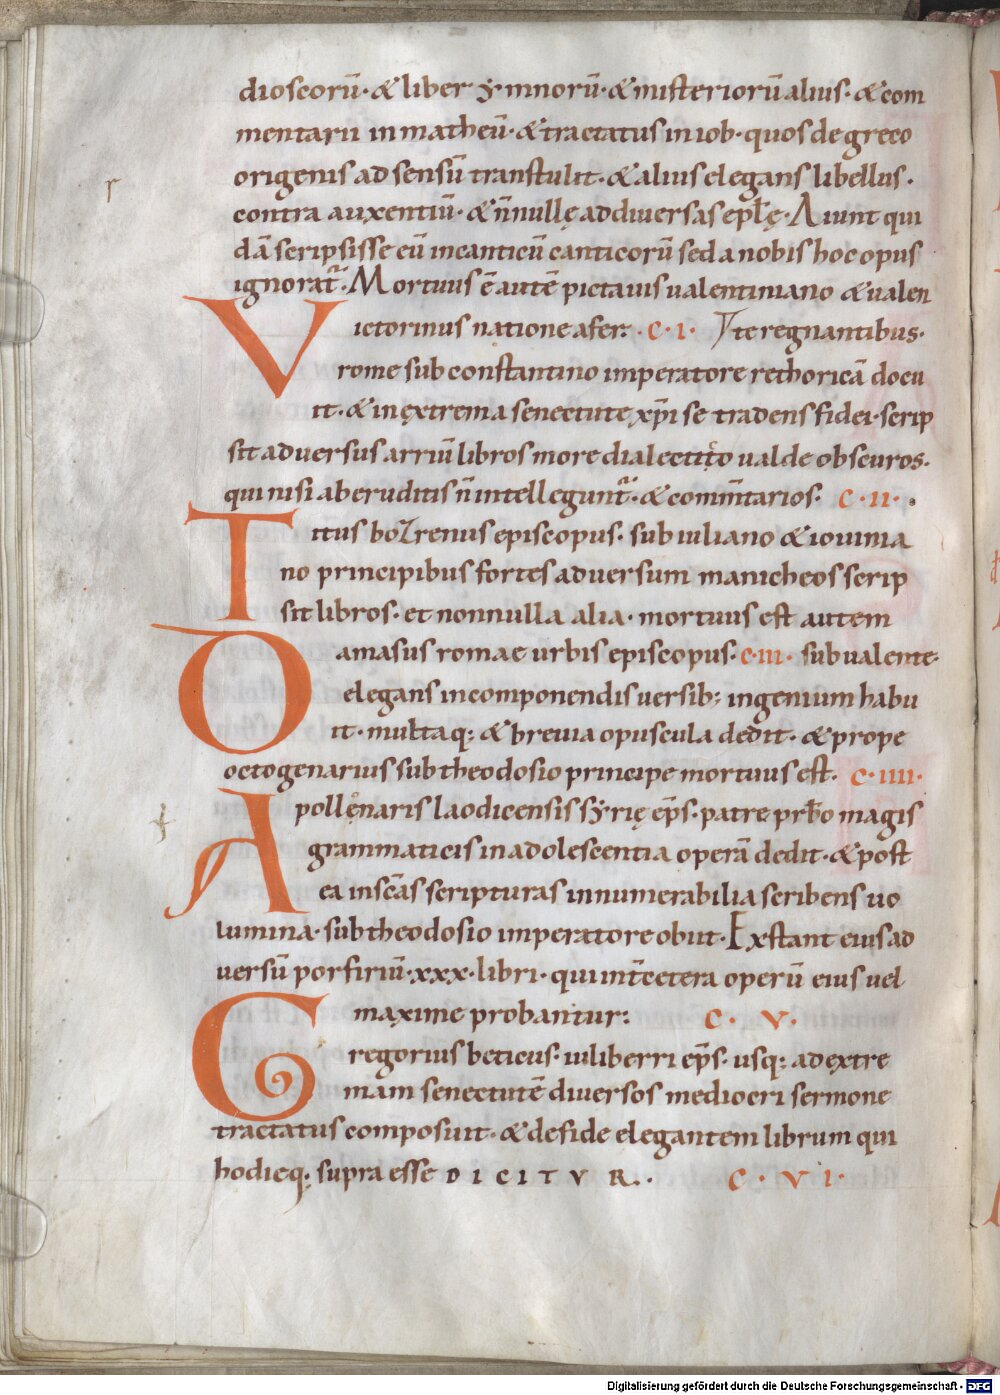 dioscorū· & liber ymnorū· & misteriorū alius· & com
mentarii in matheū· & tractatus in iob· quos de greco
origenis ad sensū transtulit· & alius elegans libellus·
contra auxentiū· & n̄nullę ad diuersas ep̄lę· Aiunt qui
dā scripsisse eū in canticū canticorū sed a nobis hoc opus
ignorat̄· Mortuus ē autē pictauis ualentiniano & ualen
Victorinus natione afer· ·C·I· Te regnantibus·
rome sub constantino imperatore rethoricā docu
it· & in extrema senectute xp̄i se tradens fidei· scrip
sit aduersus arriū libros more dialectico ualde obscuros·
qui nisi ab eruditis n̄ intellegunt̄· & comm̄tarios· C·II·
Titus bostrenus episcopus· sub iuliano & iouinia
no principibus fortes aduersum manicheos scrip
sit libros· et nonnulla alia· mortuus est autem
Damasus romae urbis episcopus· C·III· sub ualente·
elegans in componendis uersib; ingenium habu
it· multaq; & breuia opuscula dedit· & prope
octogenarius sub theodosio principe mortuus est· C·IIII·
Apollenaris laodicensis syrię ep̄s· patre prb̄o magis
grammaticis in adolescentia operā dedit· & post
ea in sc̄as scripturas innumerabilia scribens uo
lumina· sub theodosio imperatore obiit· Exstant eius ad
uersū porfiriū· xxx· libri· qui int̄ cetera operū eius uel
maxime probantur: C· V·
Gregorius beticus· iuliberri ep̄s· usq; ad extre
mam senectutē diuersos mediocri sermone
tractatus composuit· & de fide elegantem librum qui
hodieq; supra esse DICITVR· C·VI·